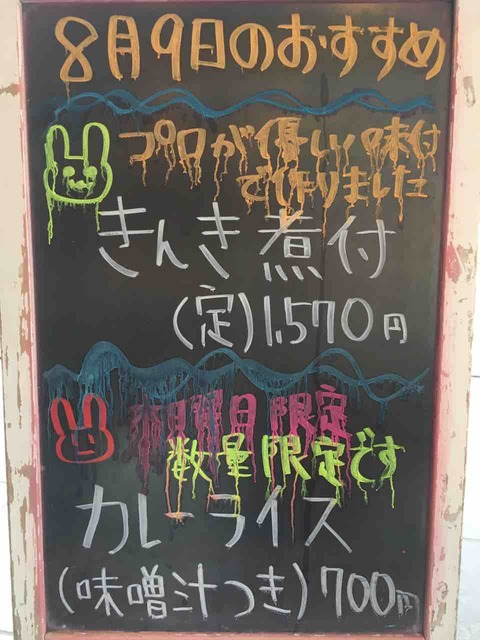 8月9日のおすすめ
プロが優しい味付
で作りました
きんき煮付
(定)1,570円
曜日限定
数量限定です
カレーライス
(味噌汁つき)700円